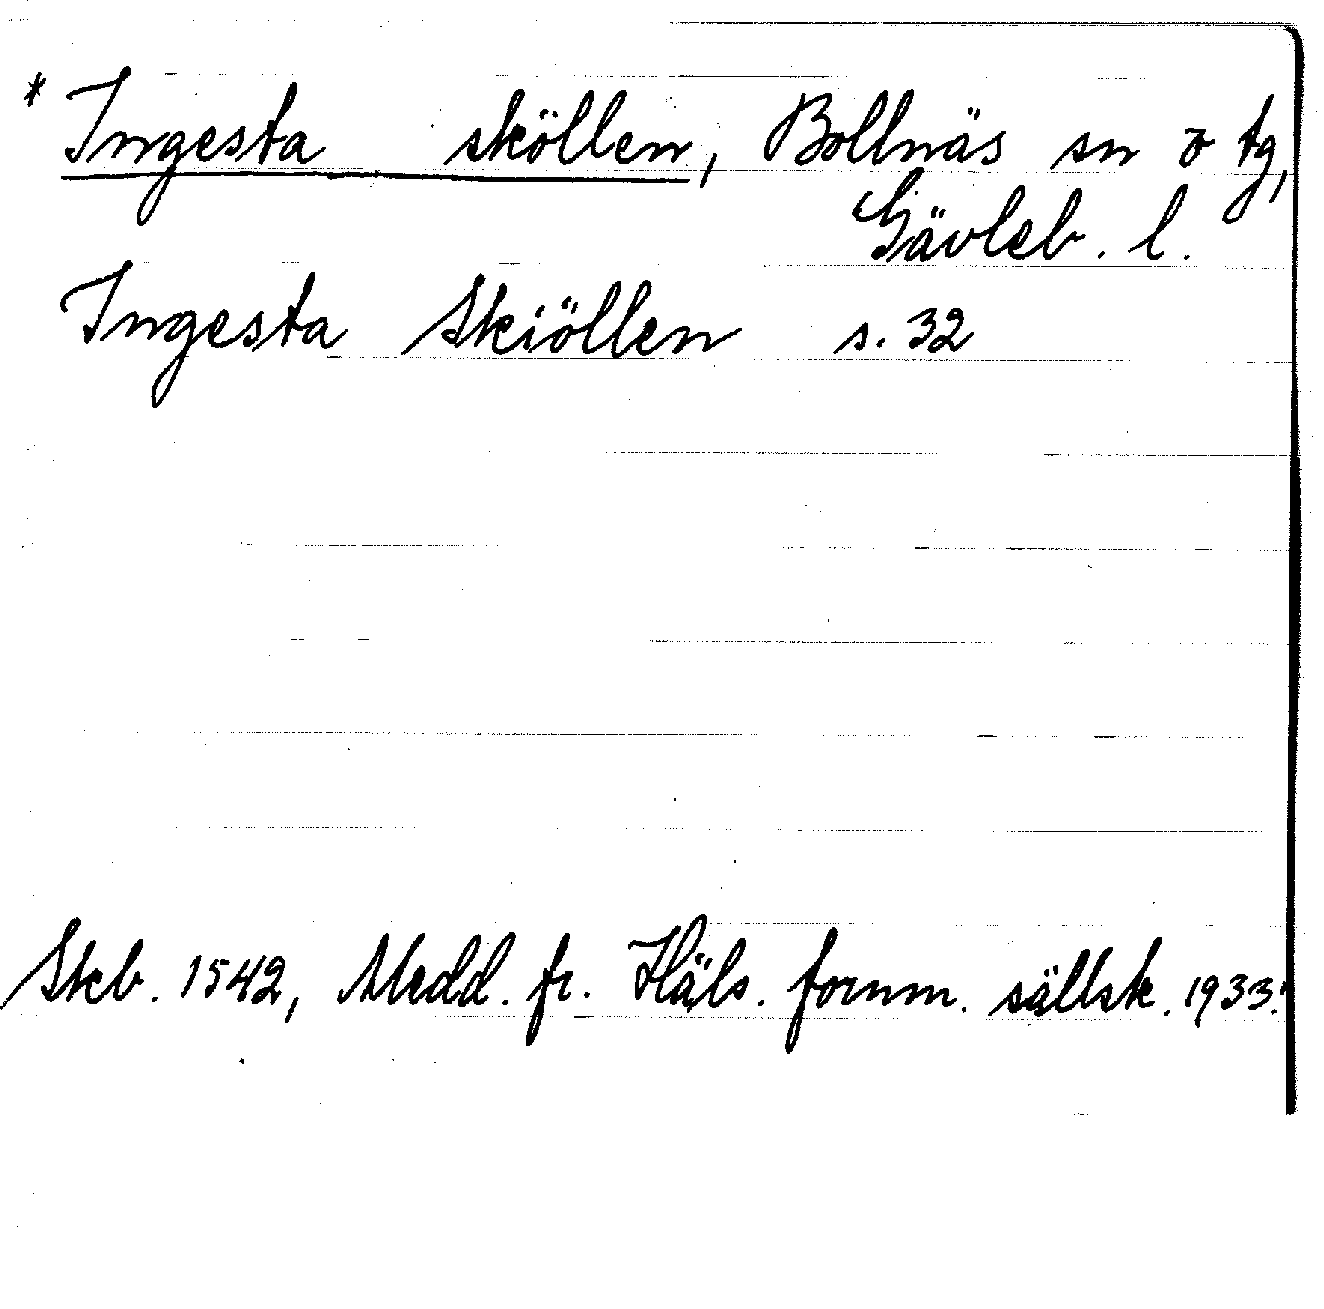 * Ingesta sköllen, Bollnäs sn o tg,
Gävleb. l.
Ingesta Skiöllen s. 32
Skb. 1542, Medd. fr. Häls. fornm. sällsk. 1933.